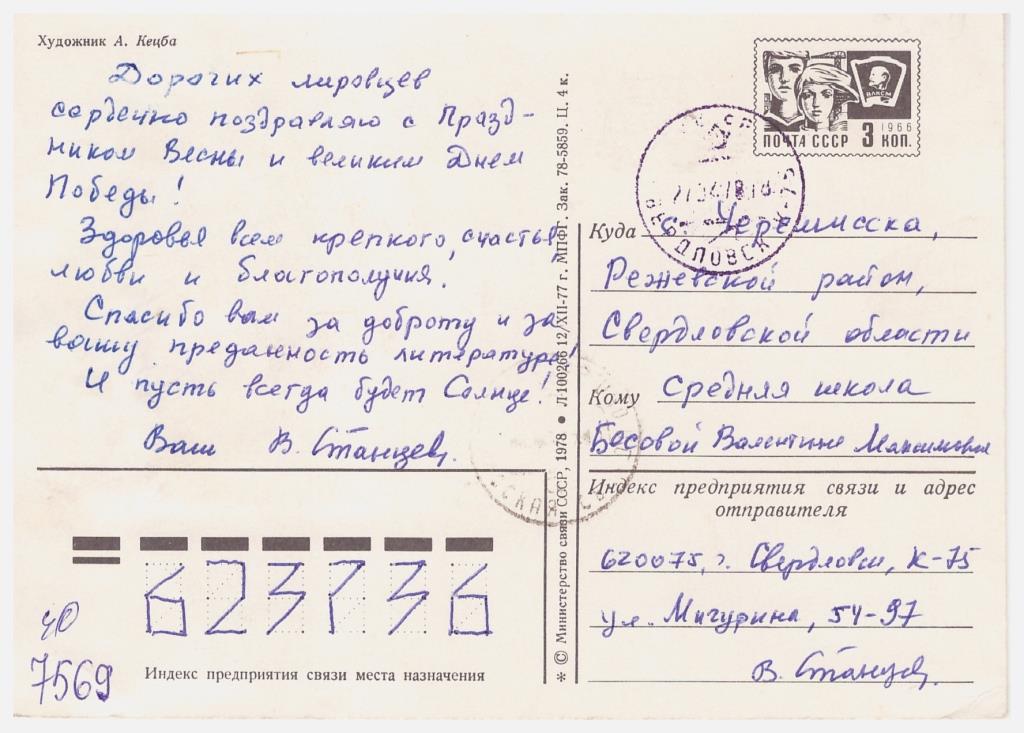 Художник А. Кецба
Дорогих мировцев
сердечно поздравляю с Празд-
ником Весны и великим Днем
Победы!
Здоровья всем крепкого, счастья
любви и благополучия!
Спасибо вам за доброту и за
вашу преданность литературе!
И пусть всегда будет Солнце!
Ваш В. Станцев.
623736
Индекс предприятия связи места назначения
ЧО
7569
* © Министерство связи СССР, 1978 ● Л-100266 12/XII-77 г. МПФГ. Зак. 78-5859. Ц. 4 к.
ВЛКСМ
1966
ПОЧТА СССР 3 КОП.
Куда с. Черемисска,
Режевской район,
Свердловской области
Кому Средняя школа
Бесовой Валентине Максимовне
Индекс предприятия связи и адрес
отправителя
620075, г. Свердловск, К-75
ул. Мичурина, 54-97
В. Станцев.